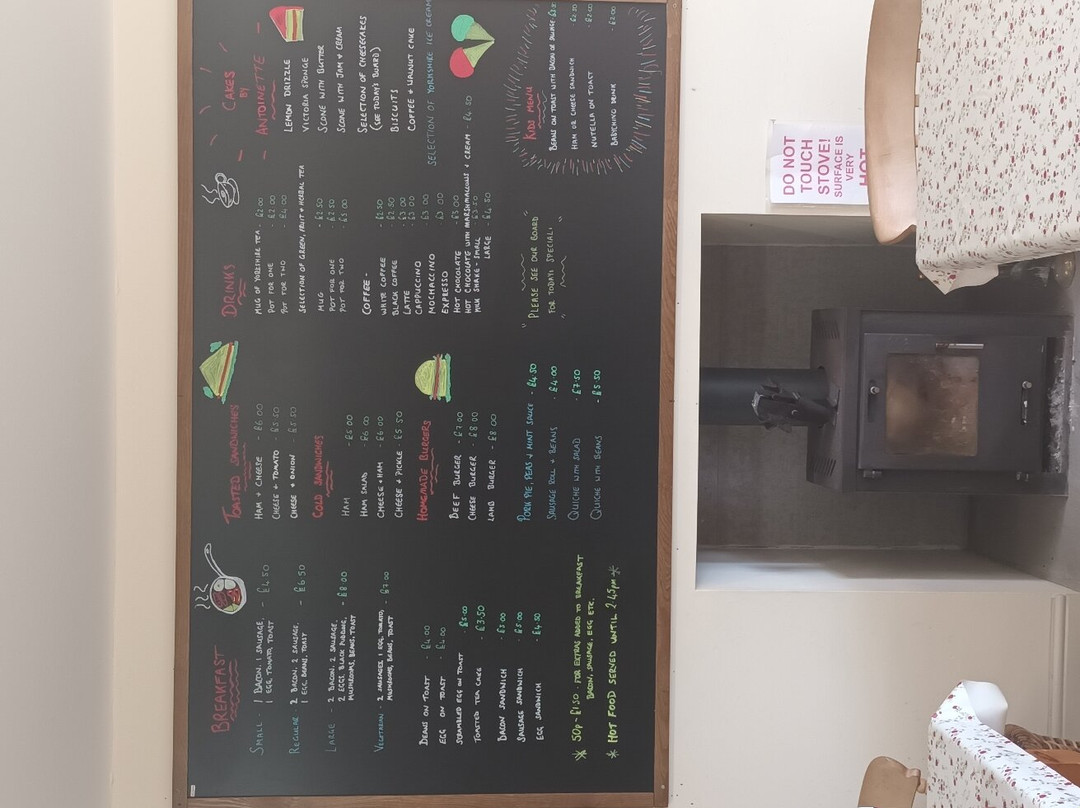 BREAKFAST
SMALL - 1 BACON. 1 SAUSAGE. - £4.50
1 EGG, TOMATO, TOAST
REGULAR 2 BACON. 2 SAUSAGE. - £6.50
1 EGG. BEANS, TOAST
LARGE - 2 BACON. 2 SAUSAGE. - £8.00
2 EGGS BLACK PUDDING,
MUSHROOMS, BEANS, TOAST
VEGETARIAN - 2 SAUSAGES 1 EGG, TOMATO, - £7.00
MUSHROOMS, BEANS, TOAST
BEANS ON TOAST - £4.00
EGG ON TOAST - £4.00
SCRAMBLED EGG ON TOAST - £5.00
TOASTED TEA CAKE - £3.50
BACON SANDWICH - £5.00
SAUSAGE SANDWICH - £5.00
EGG SANDWICH - £4.50
* 50p - £1.50 - FOR EXTRAS ADDED TO BREAKFAST
BACON, SAUSAGE, EGG ETC.
* HOT FOOD SERVED UNTIL 2.45pm *
TOASTED SANDWICHES
HAM + CHEESE - £6.00
CHEESE + TOMATO - £5.50
CHEESE + ONION - £5.50
COLD SANDWICHES
HAM - £6.00
HAM SALAD - £6.00
CHEESE + HAM - £6.00
CHEESE + PICKLE - £5.50
HOMEMADE BURGERS
BEEF BURGER - £7.00
CHEESE BURGER - £8.00
LAMB BURGER - £8.00
PORK PIE, PEAS + MINT SAUCE - £4.50
SAUSAGE ROLL + BEANS - £4.00
QUICHE WITH SALAD - £7.50
QUICHE WITH BEANS - £5.50
DRINKS
MUG OF YORKSHIRE TEA - £2.00
POT FOR ONE - £2.00
POT FOR TWO - £4.00
SELECTION OF GREEN, FRUIT + HERBAL TEA
MUG - £2.50
POT FOR ONE - £2.50
POT FOR TWO - £5.00
COFFEE -
WHITE COFFEE - £2.50
BLACK COFFEE - £2.50
LATTE - £3.00
CAPPUCCINO - £3.00
MOCHACCINO £3.00
EXPRESSO £3.00
HOT CHOCOLATE £3.00
HOT CHOCOLATE WITH MARSHMALLOWS + CREAM - £4.50
MILK SHAKE - SMALL
LARGE - £4.50
"PLEASE SEE OUR BOARD
FOR TODAYS SPECIAL"
CAKES
BY
ANTOINETTE
LEMON DRIZZLE
VICTORIA SPONGE
SCONE WITH BUTTER
SCONE WITH JAM + CREAM
SELECTION OF CHEESECAKES
(SEE TODAYS BOARD)
BISCUITS
COFFEE + WALNUT CAKE
SELECTION OF YORKSHIRE ICE CREAM
KIDS MENU
BEANS ON TOAST WITH BACON OR SAUSAGE
HAM OR CHEESE SANDWICH
NUTELLA ON TOAST - £2.00
BABYCHINO DRINK - £2.00
DO NOT
TOUCH
STOVE!
SURFACE IS
VERY
HOT